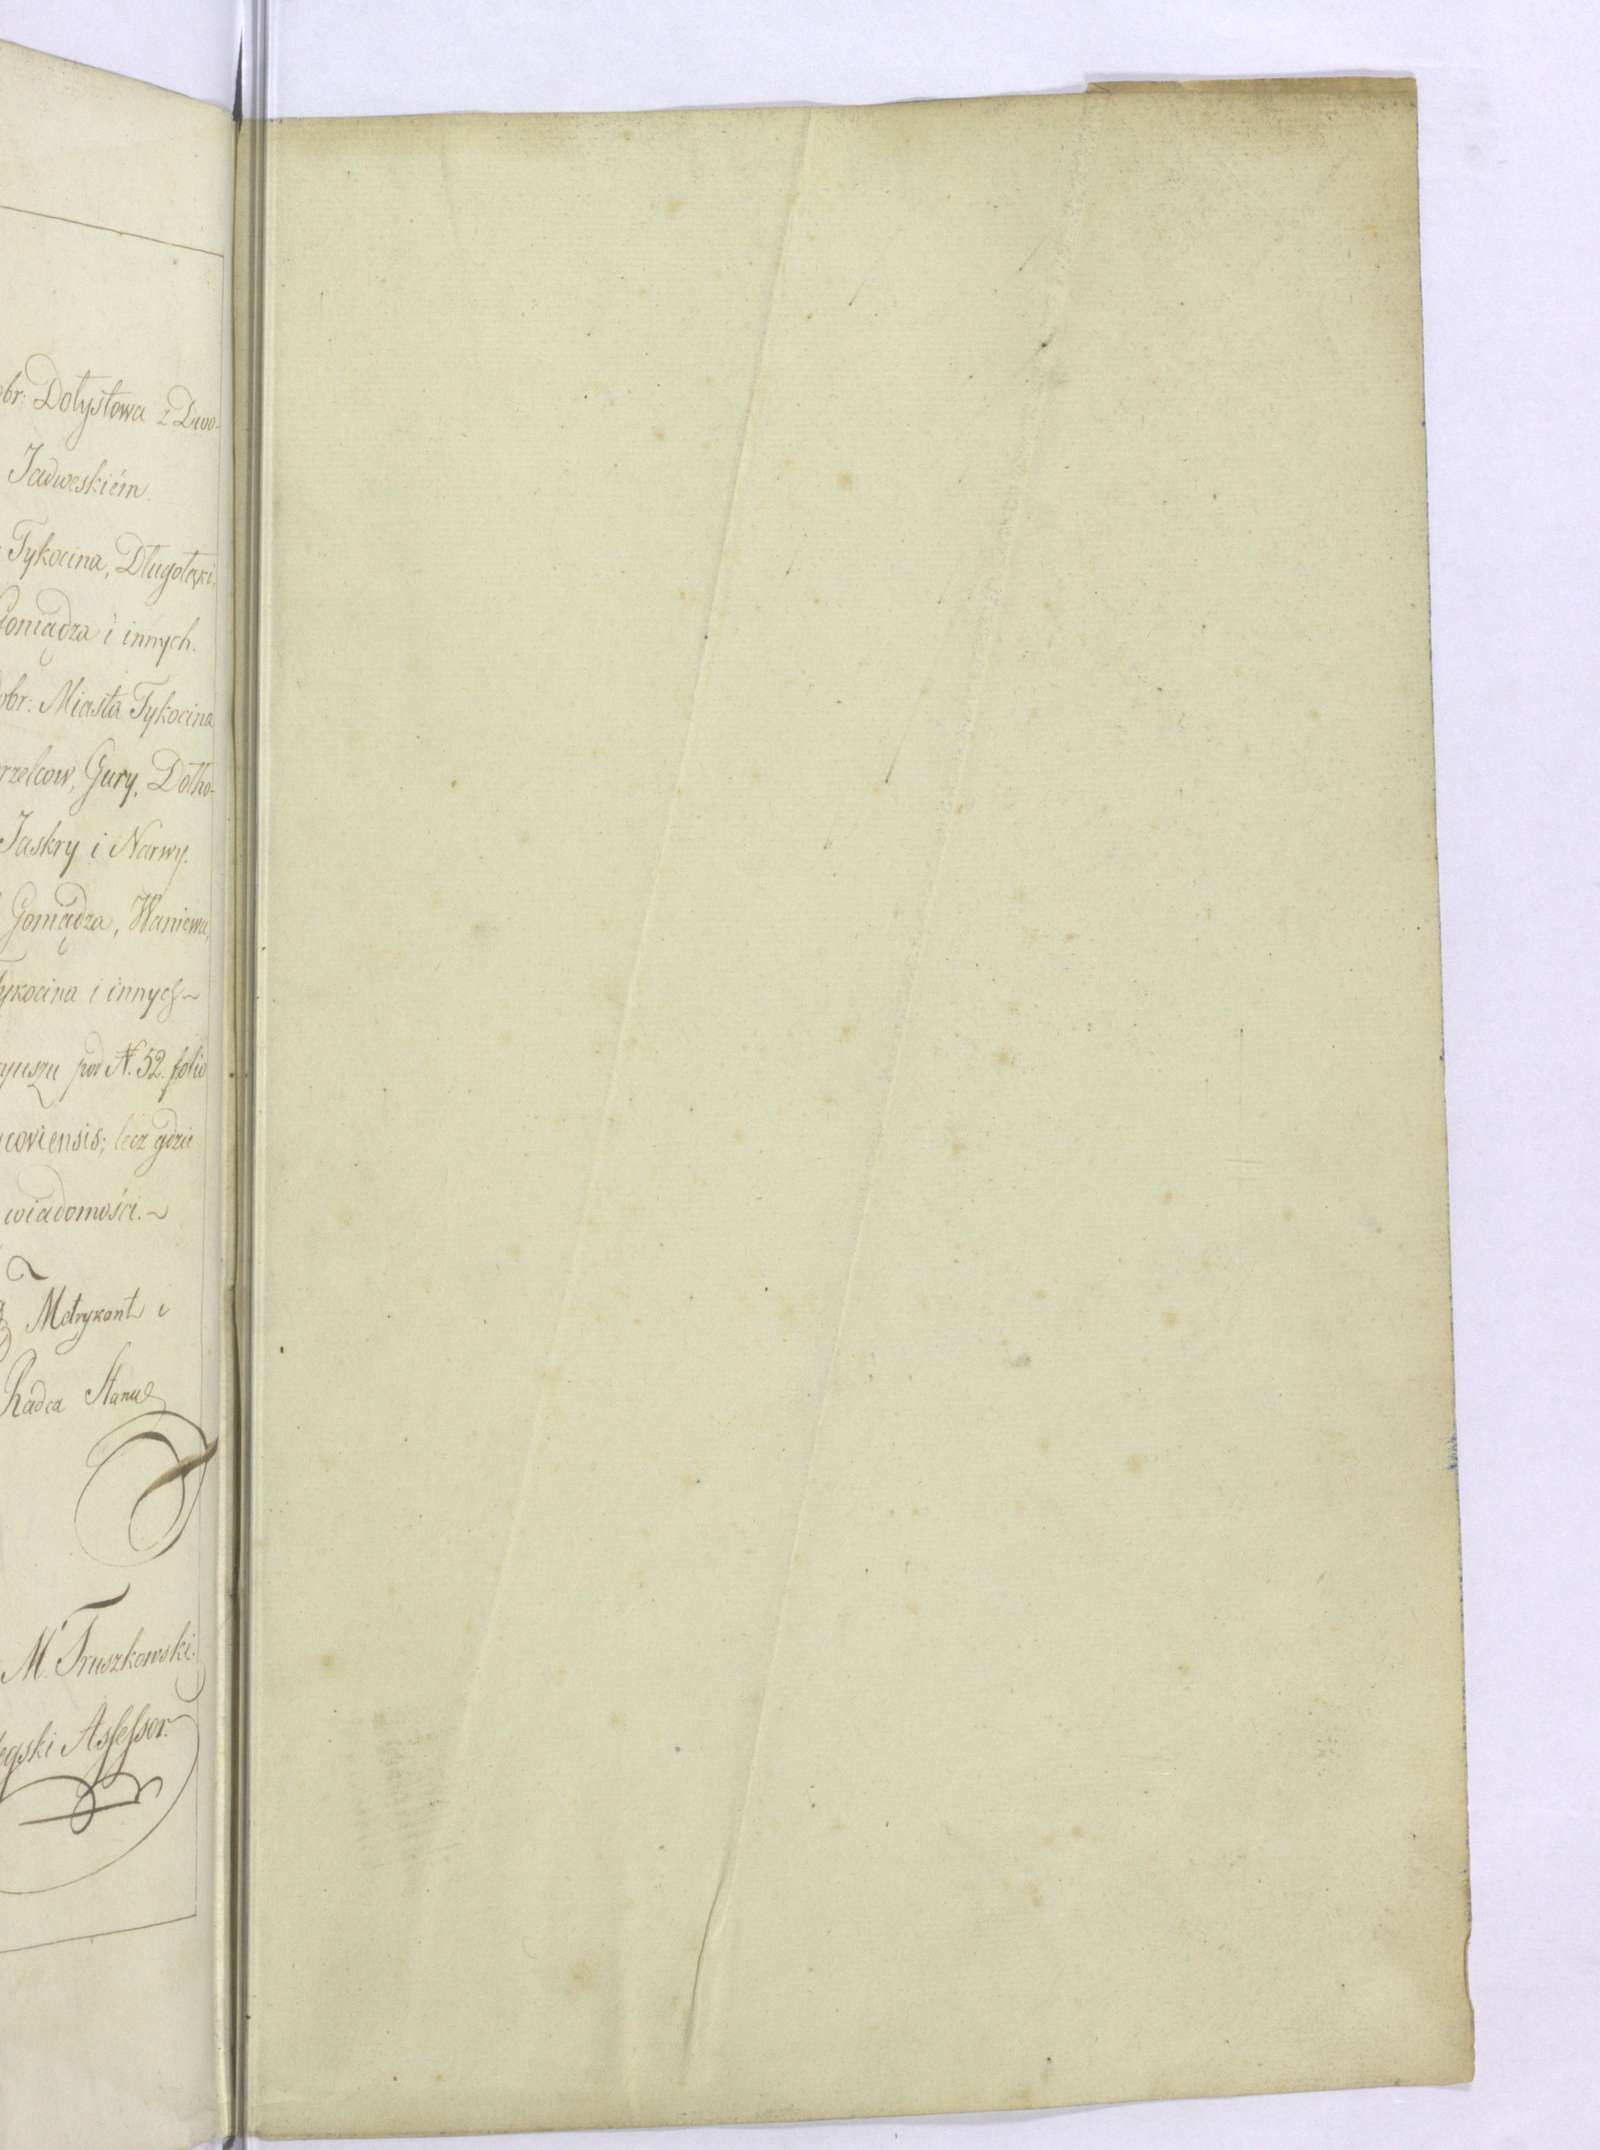 obr: Dołystowa z Dwo-
Jadweskiém.
Tykocina, Długołęki,
Goniądza i innych.
obr: Miasta Tykocina
rzelcow, Gury, Dołho-
Jaskry i Narwy.
Goniądza, Waniewa,
Tykocina i innych ~
yuszu pod N. 52. folio
coviensis; lecz gdzie
wiadomości. ~
Metrykant i
Radca Stanu
M. Truszkowski.
ęski Assessor.